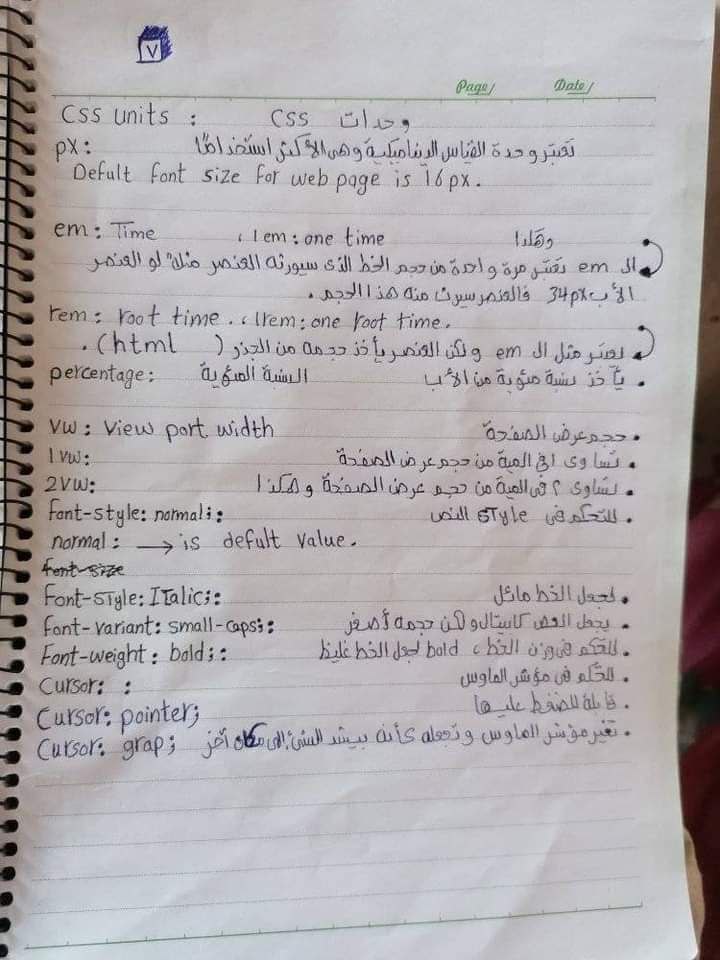 ٧
Page/ Date/
CSS units : وحدات CSS
px: تعتبر وحدة القياس الديناميكية وهى الأكثر استخدامًا
Defult font size for web page is 16px.
em: Time ، 1em: one time وهكذا
ال em تعتبر مرة واحدة من حجم الخط الذى سيورثه العنصر مثلاً لو العنصر
الأب 34px فالعنصر سيرث منه هذا الحجم .
rem: root time. ، 1rem: one root time.
يعتبر مثل ال em ولكن العنصر يأخذ حجمه من الجذر (html) .
percentage: النسبة المئوية يأخذ نسبة مئوية من الأب .
vw: View port width حجم عرض الصفحة .
1vw: تساوى ١ فى المية من حجم عرض الصفحة .
2vw: تساوى ٢ فى المية من حجم عرض الصفحة وهكذا .
font-style: normal;: للتحكم فى STyle النص .
normal: → is defult value.
font-size
Font-STyle: ITalic;: لجعل الخط مائل .
font-variant: small-caps;: يجعل النص كابيتال ولكن حجمه أصغر .
Font-weight: bold;: للتحكم فى وزن الخط ، bold لجعل الخط غليظ .
Cursor: : للتحكم فى مؤشر الماوس .
Cursor: pointer; قابلة للضغط عليها .
Cursor: grap; تغير مؤشر الماوس وتجعله كأنه بيشد الشئ إلى مكان آخر .